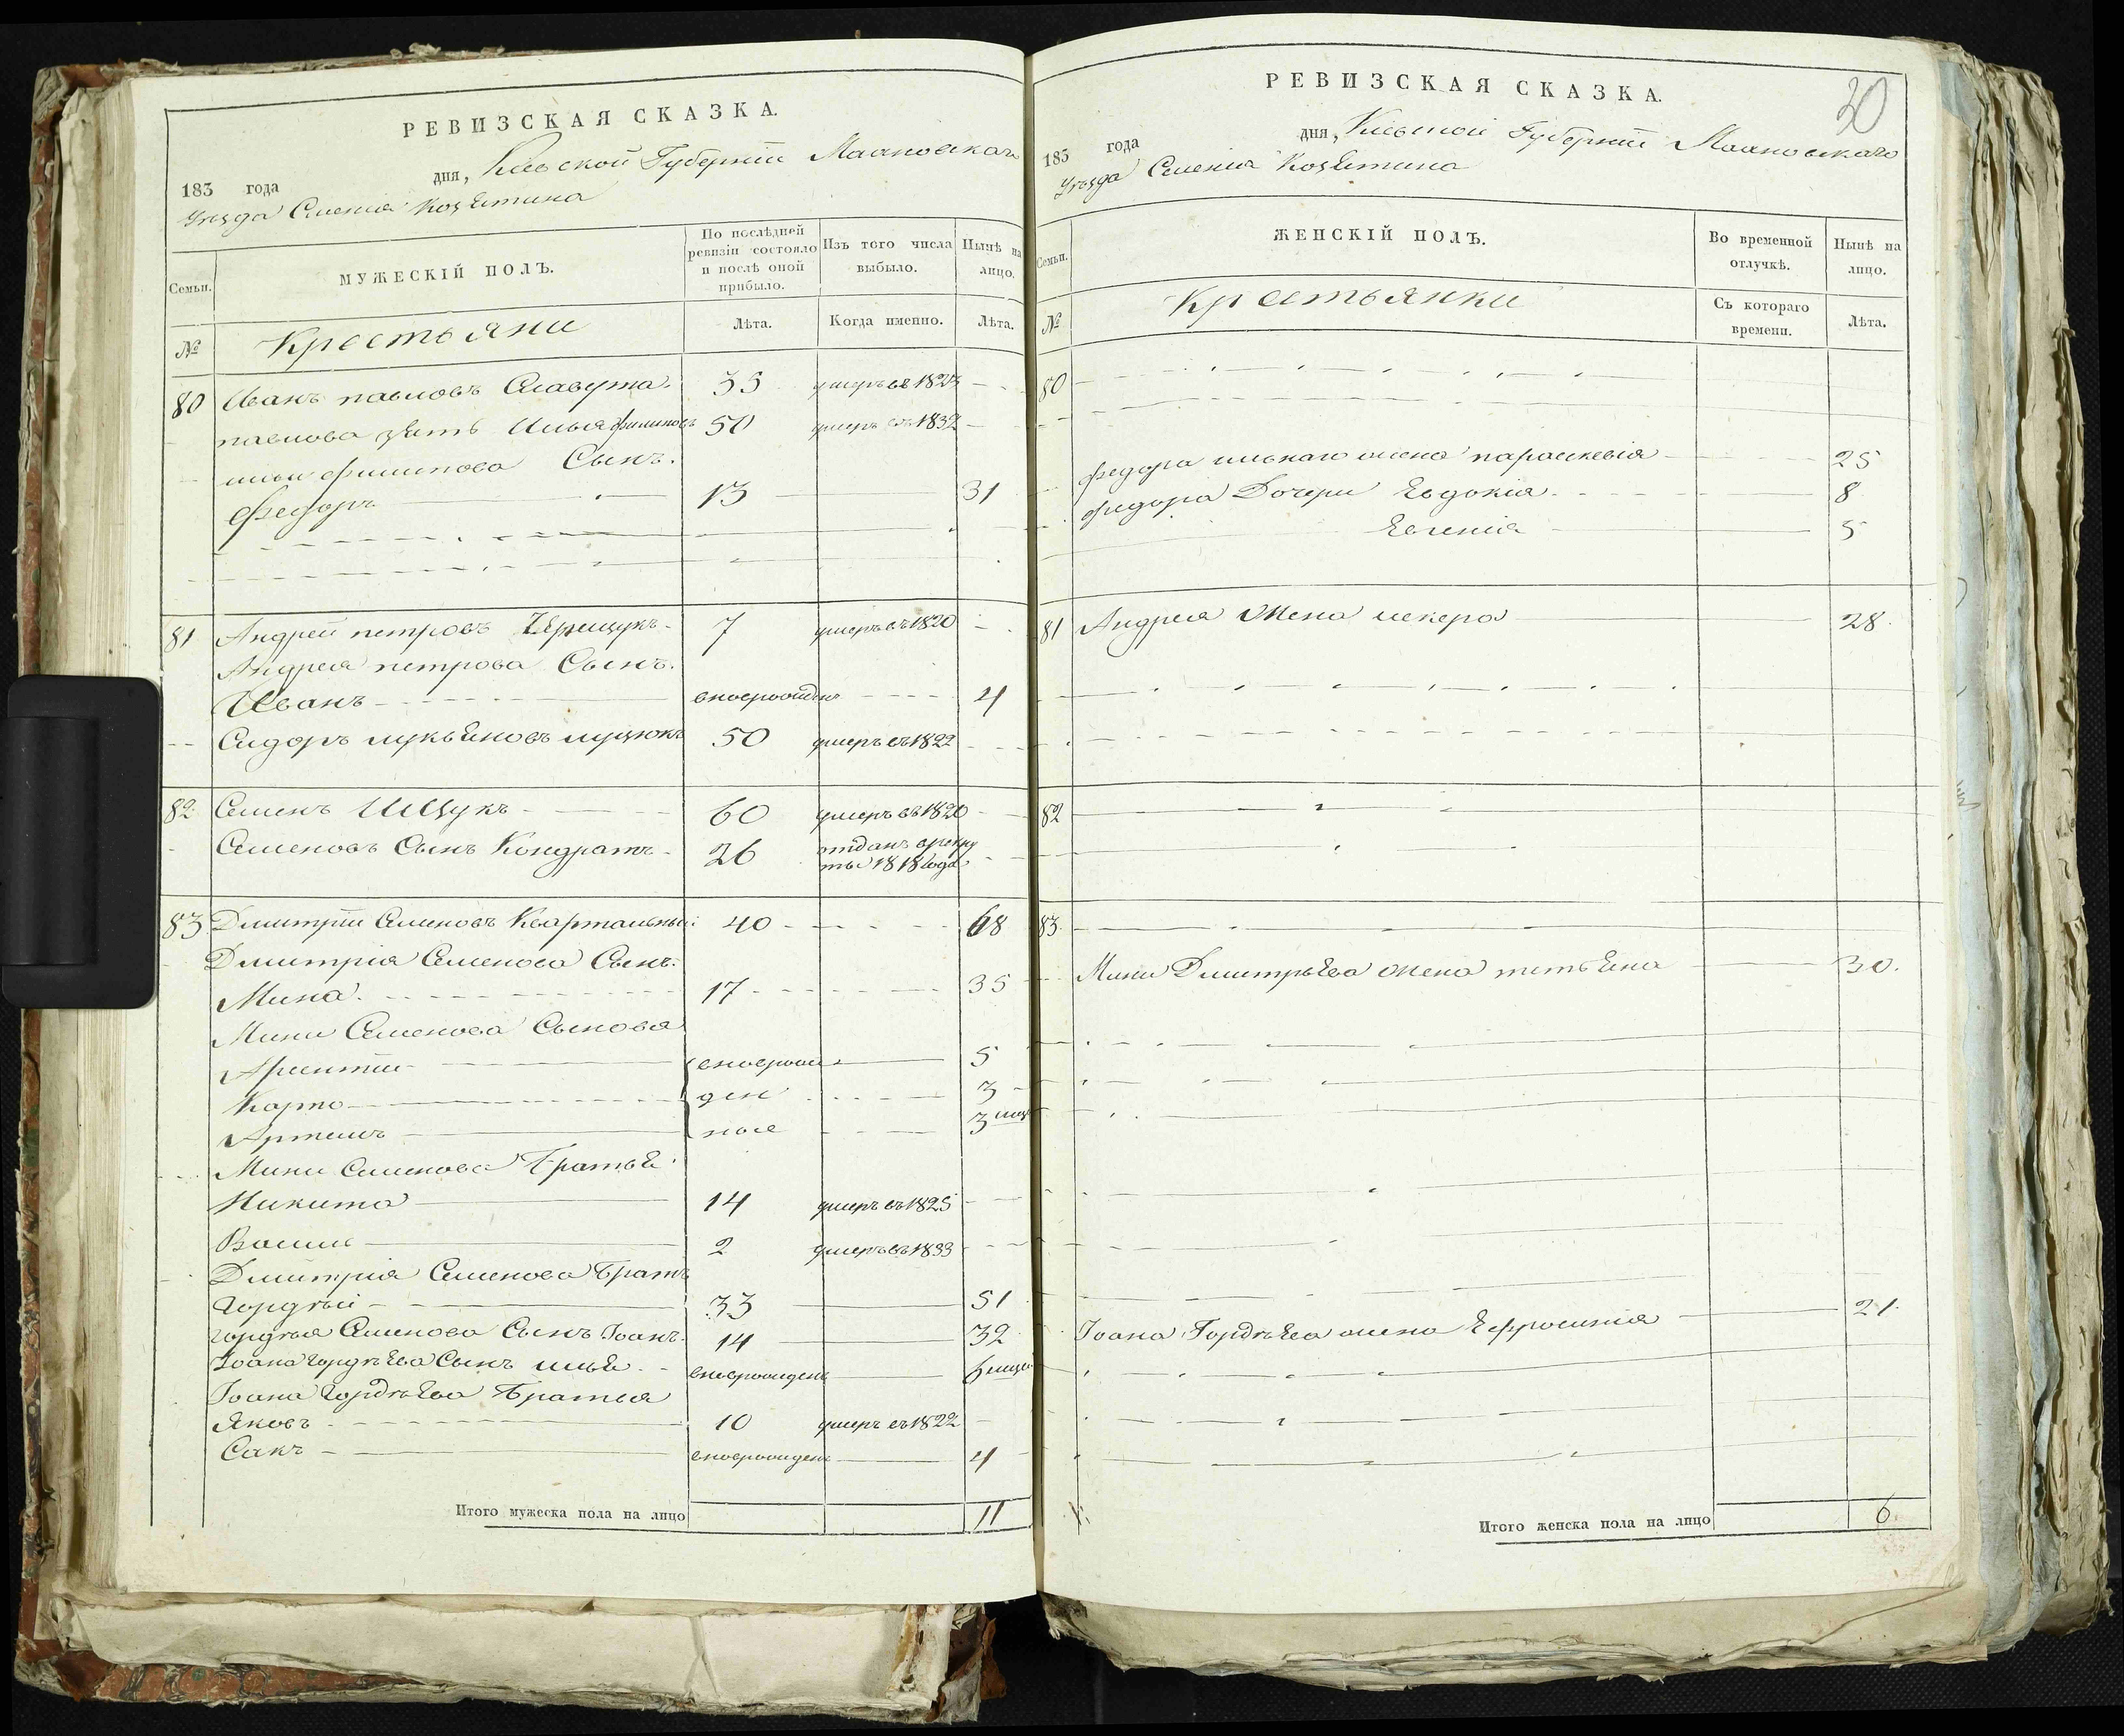 РЕВИЗСКАЯ СКАЗКА.
183 года дня, Киевской Губернiи Махновскаго
Уѣзда Селенiя Козятина
Семьи. МУЖЕСКІЙ ПОЛЪ. По послѣдней ревизіи состояло и послѣ оной прибыло. Изъ того числа выбыло. Нынѣ на лицо.
№ Крестьяни Лѣта. Когда именно. Лѣта.
80 Иванъ павловъ Славута 35 умеръ въ 1823
павлова зять Илья филиповъ 50 умеръ въ 1832
ильи филипова Сынъ
Федоръ 13 31
81 Андрей петровъ 7 умеръ въ 1820
Андрея петрова Сынъ
Иванъ вноврожденъ 4
Сидоръ лукьяновъ луцюкъ 50 умеръ въ 1822
82 Семенъ Ищукъ 60 умеръ въ 1820
Семеновъ Сынъ Кондратъ 26 отданъ врекру
ты 1818 года
83 Дмитрiй Семеновъ Квартальный 40 68
Дмитрiя Семенова Сынъ
Мина 17 35
Мины Семенова Сыновя
5
Карпо ден 3
Артемъ ные 3 мец
Мины Семенова Братья
Никита 14 умеръ въ 1825
Василь 2 умеръ въ 1833
Дмитрiя Семенова Братъ
Гордѣй 33 51
гордѣя Семенова Сынъ Іоанъ 14 32
Іоана гордѣева Сынъ илья вноврожденъ
Іоана гордѣева Братья
Яковъ 10 умеръ въ 1822
Сакъ вноврожденъ 4
Итого мужеска пола на лицо 11
30
РЕВИЗСКАЯ СКАЗКА.
183 года дня, Киевской Губернiи Махновскаго
Уѣзда Селенiя Козятина
Семьи. ЖЕНСКІЙ ПОЛЪ. Во временной отлучкѣ. Нынѣ на лицо.
№ Крестьянки Съ котораго времени. Лѣта.
80
федора жена параскевiя 25
федора Дочери Евдокiя 8
Евгенiя 5
81 Андрея Жена 28
82
83
Мины Дмитрьева жена тетьяна 30
Іоана Гордѣева жена Ефросинiя 21
Итого женска пола на лицо 6